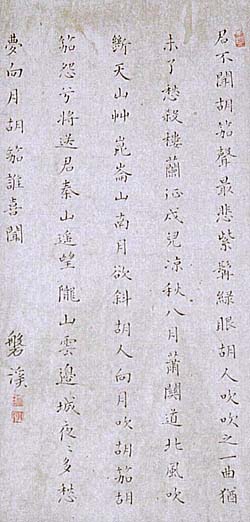 君不聞胡笳聲最悲紫髯綠眼胡人吹吹之一曲猶
未了愁殺樓蘭征戍兒涼秋八月蕭關道北風吹
斷天山艸崑崙山南月欲斜胡人向月吹胡笳胡
笳怨兮將送君秦山遙望隴山雲邊城夜々多愁
夢向月胡笳誰喜聞
磐溪